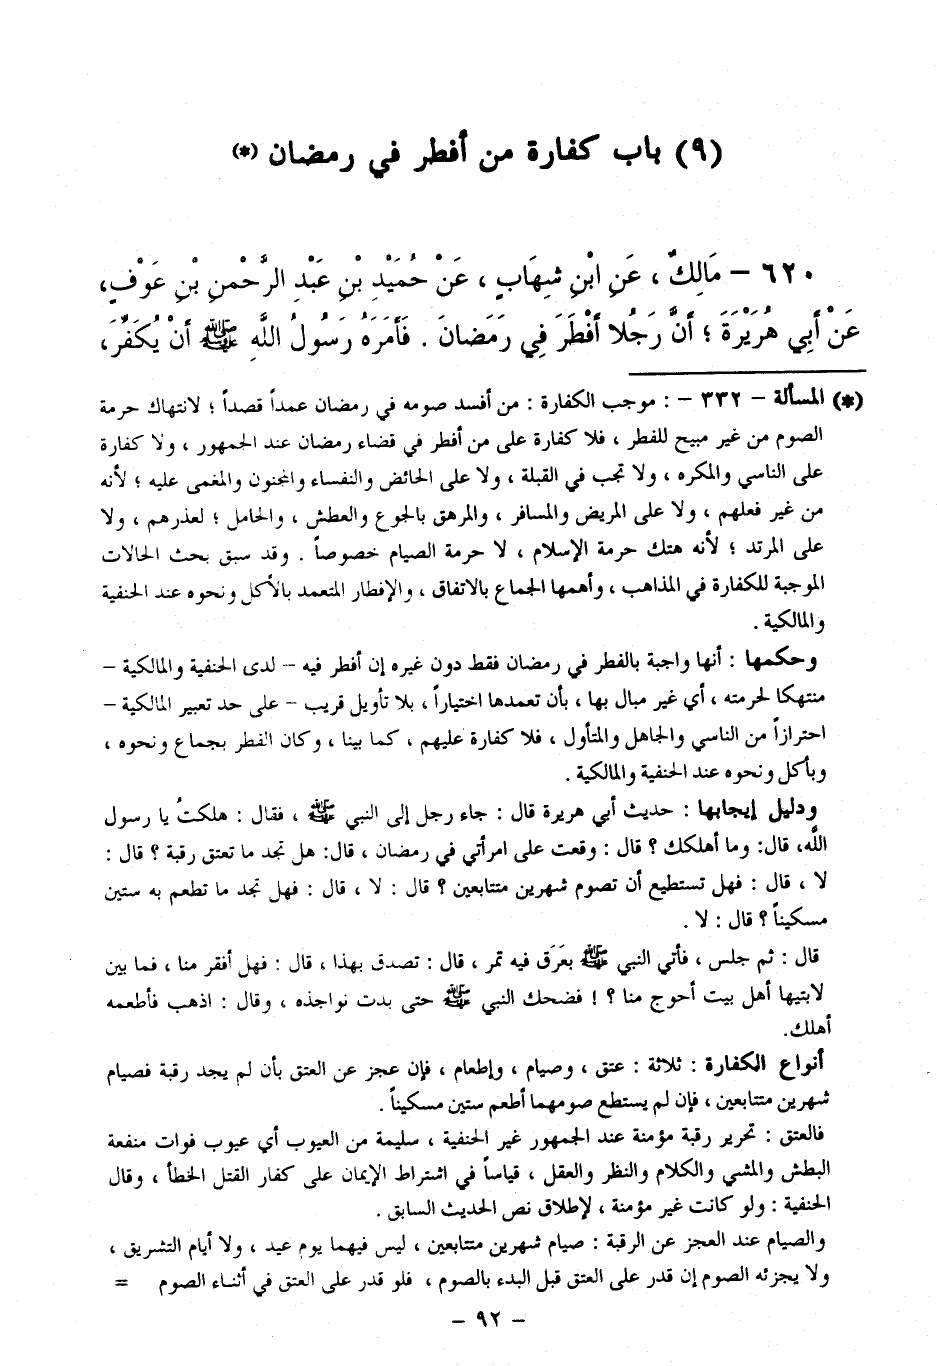 (٩) باب كفارة من أفطر في رمضان (*)
٦٢٠ – مَالِكٌ ، عَنِ ابْنِ شِهَابٍ ، عَنْ حُمَيْدِ بْنِ عَبْدِ الرَّحْمنِ بْنِ عَوْفٍ،
عَنْ أَبِي هُرَيْرَةَ ؛ أَنَّ رَجُلا أَفْطَرَ فِي رَمَضَانَ . فَأَمَرَهُ رَسُولُ اللَّهِ ﷺ أَنْ يُكَفِّرَ،
(*) المسألة – ٣٣٢ – : موجب الكفارة : من أفسد صومه في رمضان عمداً قصداً ؛ لانتهاك حرمة
الصوم من غير مبيح للفطر ، فلا كفارة على من أفطر في قضاء رمضان عند الجمهور ، ولا كفارة
على الناسي والمكره ، ولا تجب في القبلة ، ولا على الحائض والنفساء والمجنون والمغمى عليه ؛ لأنه
من غير فعلهم ، ولا على المريض والمسافر ، والمرهق بالجوع والعطش ، والحامل ؛ لعذرهم ، ولا
على المرتد ؛ لأنه هتك حرمة الإسلام ، لا حرمة الصيام خصوصاً . وقد سبق بحث الحالات
الموجبة للكفارة في المذاهب ، وأهمها الجماع بالاتفاق ، والإفطار المتعمد بالأكل ونحوه عند الحنفية
والمالكية .
وحكمها : أنها واجبة بالفطر في رمضان فقط دون غيره إن أفطر فيه – لدى الحنفية والمالكية –
منتهكا لحرمته ، أي غير مبال بها ، بأن تعمدها اختياراً ، بلا تأويل قريب – على حد تعبير المالكية –
احترازاً من الناسي والجاهل والمتأول ، فلا كفارة عليهم ، كما بينا ، وكان الفطر بجماع ونحوه ،
وبأكل ونحوه عند الحنفية والمالكية .
ودليل إيجابها : حديث أبي هريرة قال : جاء رجل إلى النبي ﷺ ، فقال : هلكتُ يا رسول
اللَّه، قال: وما أهلكك ؟ قال : وقعت على امرأتي في رمضان ، قال: هل تجد ما تعتق رقبة ؟ قال :
لا ، قال : فهل تستطيع أن تصوم شهرين متتابعين ؟ قال : لا ، قال : فهل تجد ما تطعم به ستين
مسكيناً ؟ قال : لا .
قال : ثم جلس ، فأتي النبي ﷺ بعَرَق فيه تمر ، قال : تصدق بهذا ، قال : فهل أفقر منا ، فما بين
لابتيها أهل بيت أحوج منا ؟ ! فضحك النبي ﷺ حتى بدت نواجذه ، وقال : اذهب فأطعمه
أهلك.
أنواع الكفارة : ثلاثة : عتق ، وصيام ، وإطعام ، فإن عجز عن العتق بأن لم يجد رقبة فصيام
شهرين متتابعين ، فإن لم يستطع صومهما أطعم ستين مسكيناً .
فالعتق : تحرير رقبة مؤمنة عند الجمهور غير الحنفية ، سليمة من العيوب أي عيوب فوات منفعة
البطش والمشي والكلام والنظر والعقل ، قياساً في اشتراط الإيمان على كفار القتل الخطأ ، وقال
الحنفية : ولو كانت غير مؤمنة ، لإطلاق نص الحديث السابق .
والصيام عند العجز عن الرقبة : صيام شهرين متتابعين ، ليس فيهما يوم عيد ، ولا أيام التشريق ،
ولا يجزئه الصوم إن قدر على العتق قبل البدء بالصوم ، فلو قدر على العتق في أثناء الصوم =
– ٩٢ –